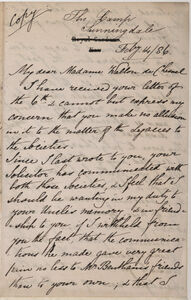 Copy
The Camp
Sunningdale
Royal Gardens
Kew
Feby 4/86.
My dear Madame Walton du Chesnel
I have received your letter of
the 6th & cannot but express my
concern that you make no allusion
in it to the matter of the Legacies to
the Societies
Since I last wrote to you, your
Solicitor has communicated with
both those Societies, & I feel that I
should be wanting in my duty to
your Uncle's memory & my friend
ship to you if I withheld from
you the fact that the communica
tions he made gave very great
pain no less to Mr Bentham's friends
than to your own, & that I